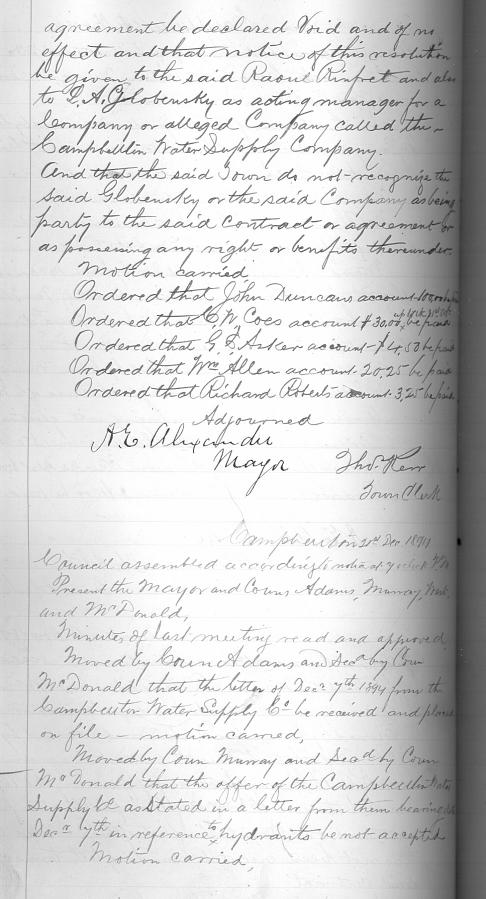 agreement be declared Void and of no
effect and that notice of this resolution
be given to the said Raoul Rinfret and also
to L. A. Globensky as acting manager for a
Company or alleged Company called the
Campbellton Water Supply Company.
And that the said Town do not recognize the
said Globensky or the said Company as being
party to the said Contract or agreement or
as possessing any right or benefits thereunder.
Motion carried
Ordered that John Duncans account
Ordered that C. W. Coes account $30.00 be paid
Ordered that G. S. Asker account $4.50 be paid
Ordered that Wm Allen account 20.25 be paid
Ordered that Richard Roberts account 3.25 be paid
Adjourned
A. E. Alexander
Mayor
Thos. Kerr
Town Clerk
Campbellton 21st Dec 1894
Council assembled according to notice at 7 oclock P.M.
Present the Mayor and Couns Adams, Murray,
and McDonald,
Minutes of last meeting read and approved
Moved by Coun Adams and Secd by Coun
McDonald that the letter of Decr 7th 1894 from the
Campbellton Water Supply Co be received and placed
on file – motion carried,
Moved by Coun Murray and Secd by Coun
McDonald that the offer of the Campbellton Water
Supply Co as Stated in a letter from them bearing date
Decr 7th in reference to hydrants be not accepted
Motion carried,